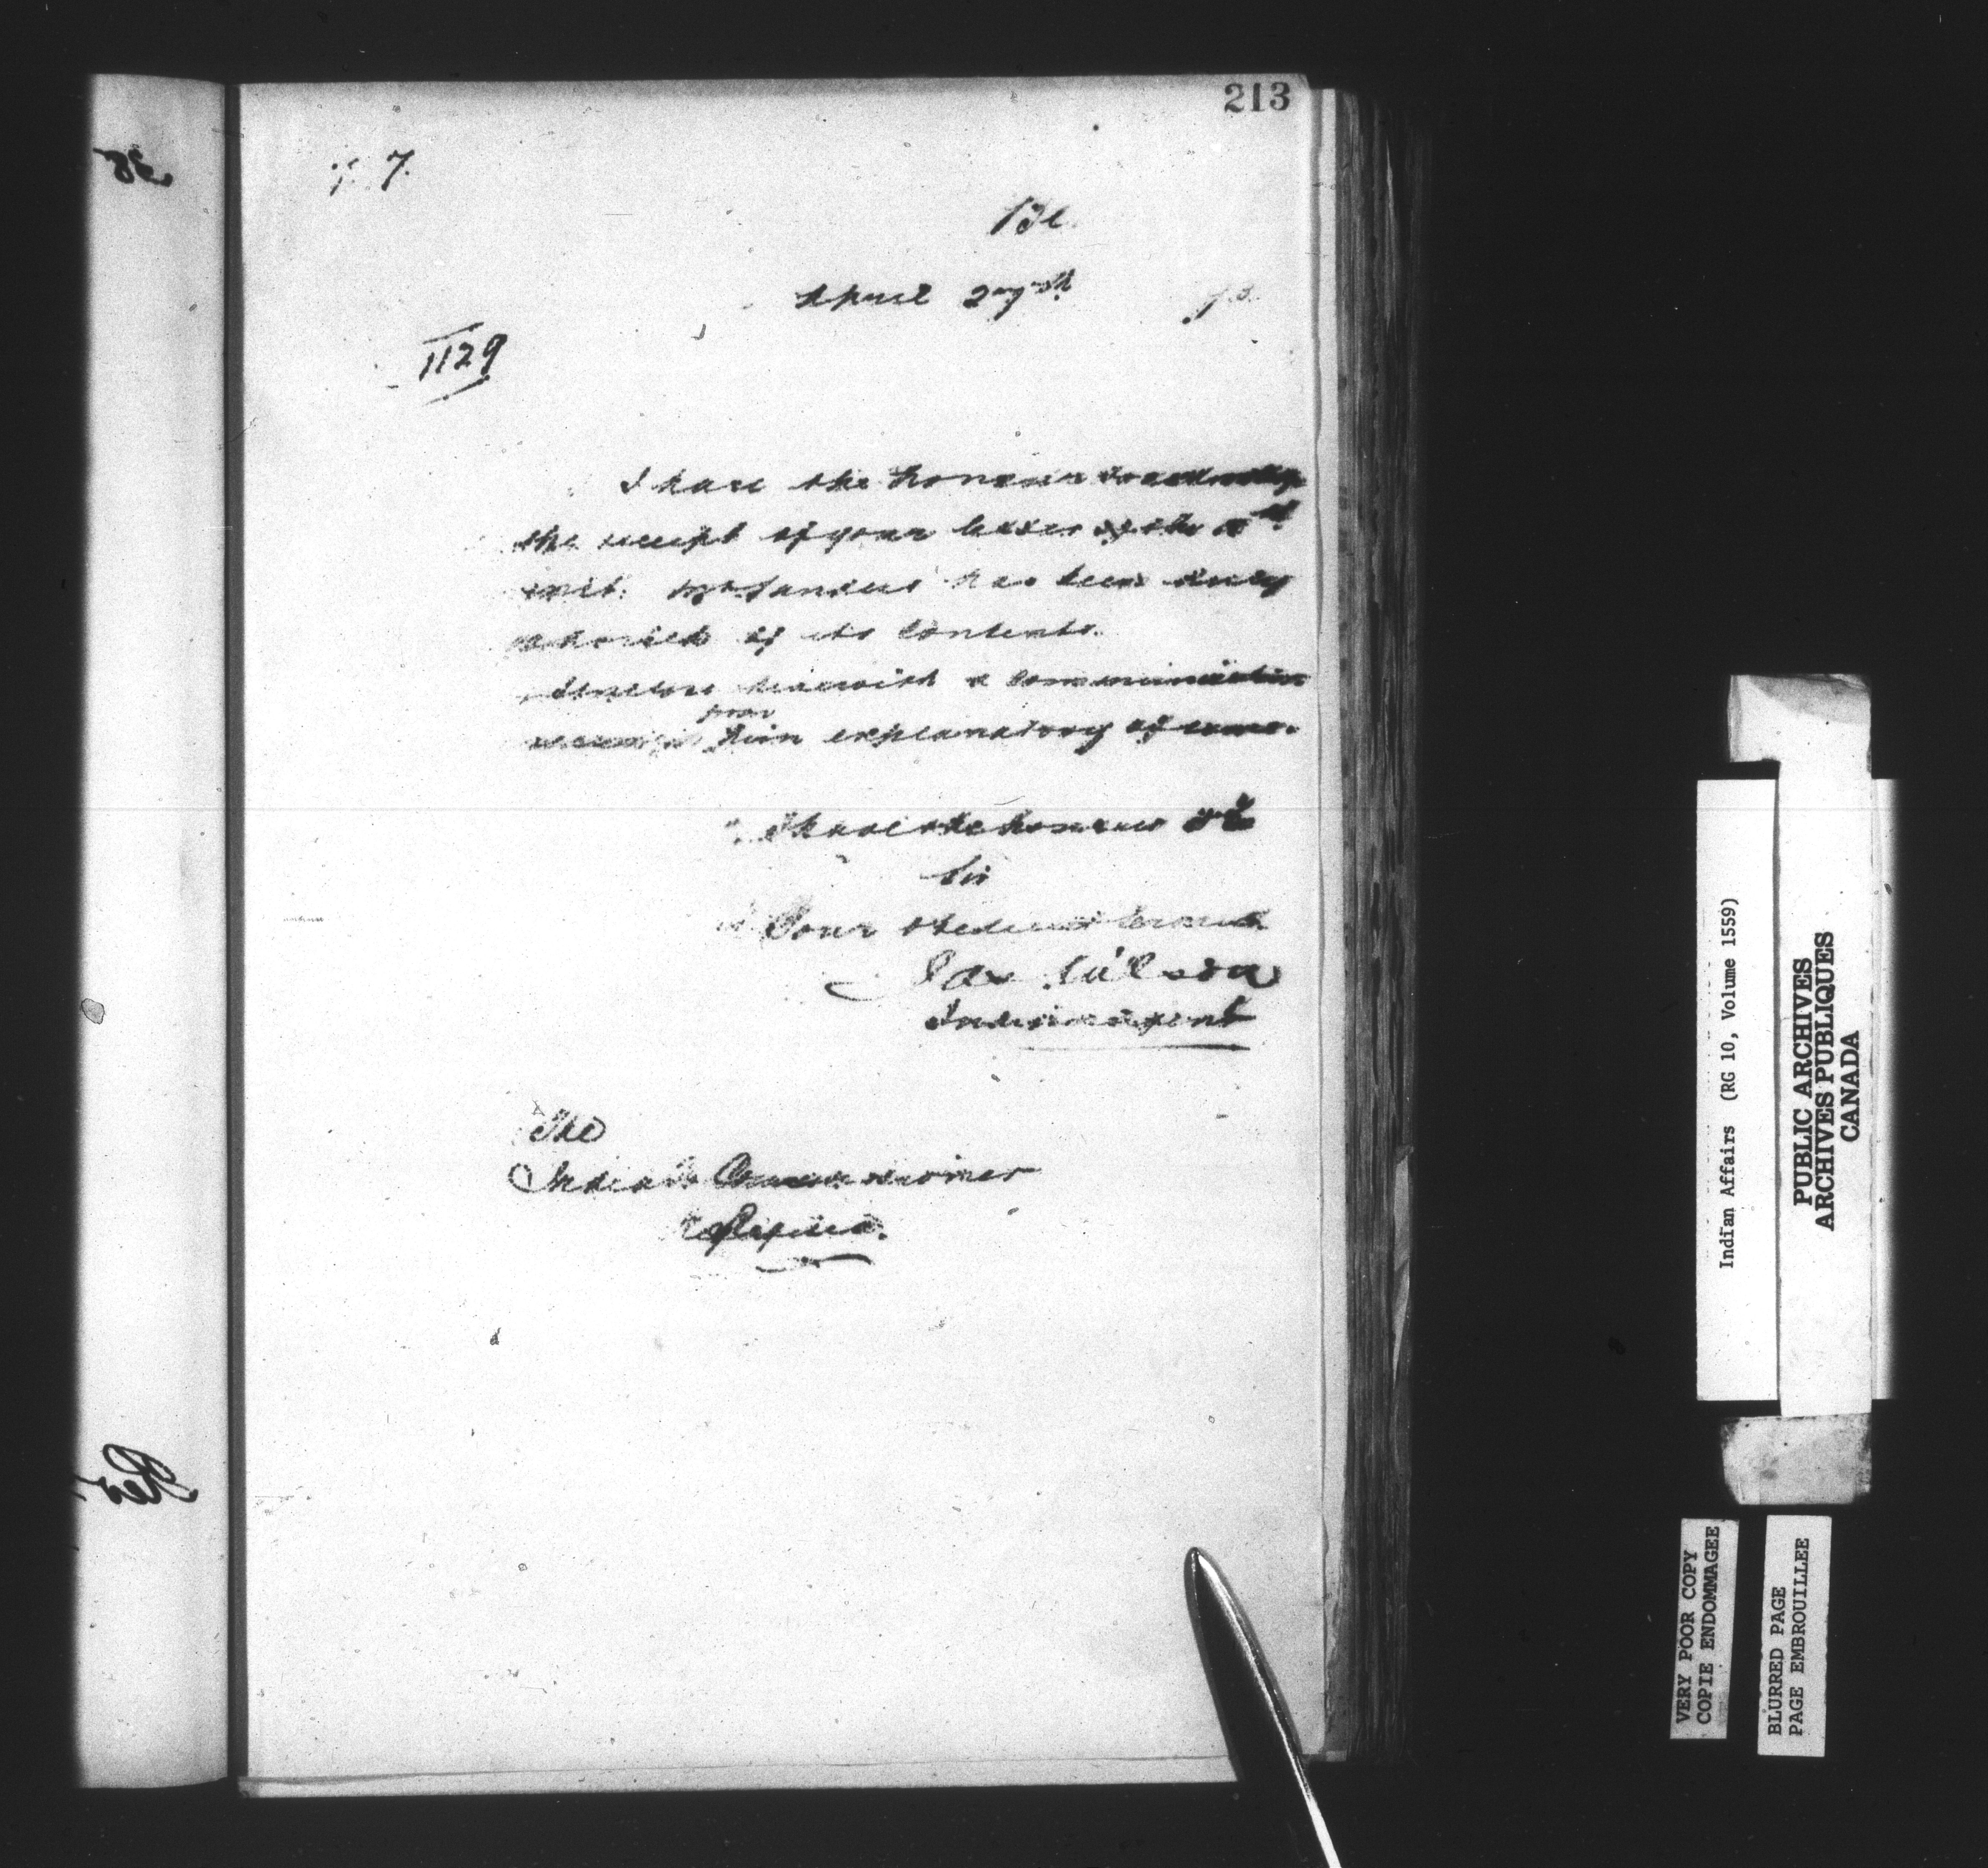 213
7.
April
1129
I have the honour to acknowledge
the receipt of your letter of the
inst. has been duly
of its contents.
I enclose herewith a communication
from
him explanatory of same.
I have the honour to be
Sir
Your obedient Servant
Jas Wilson
Indian Agent
The
Indian Commissioner
Regina.
Indian Affairs (RG 10, Volume 1559)
PUBLIC ARCHIVES
ARCHIVES PUBLIQUES
CANADA
VERY POOR COPY
COPIE ENDOMMAGEE
BLURRED PAGE
PAGE EMBROUILLEE